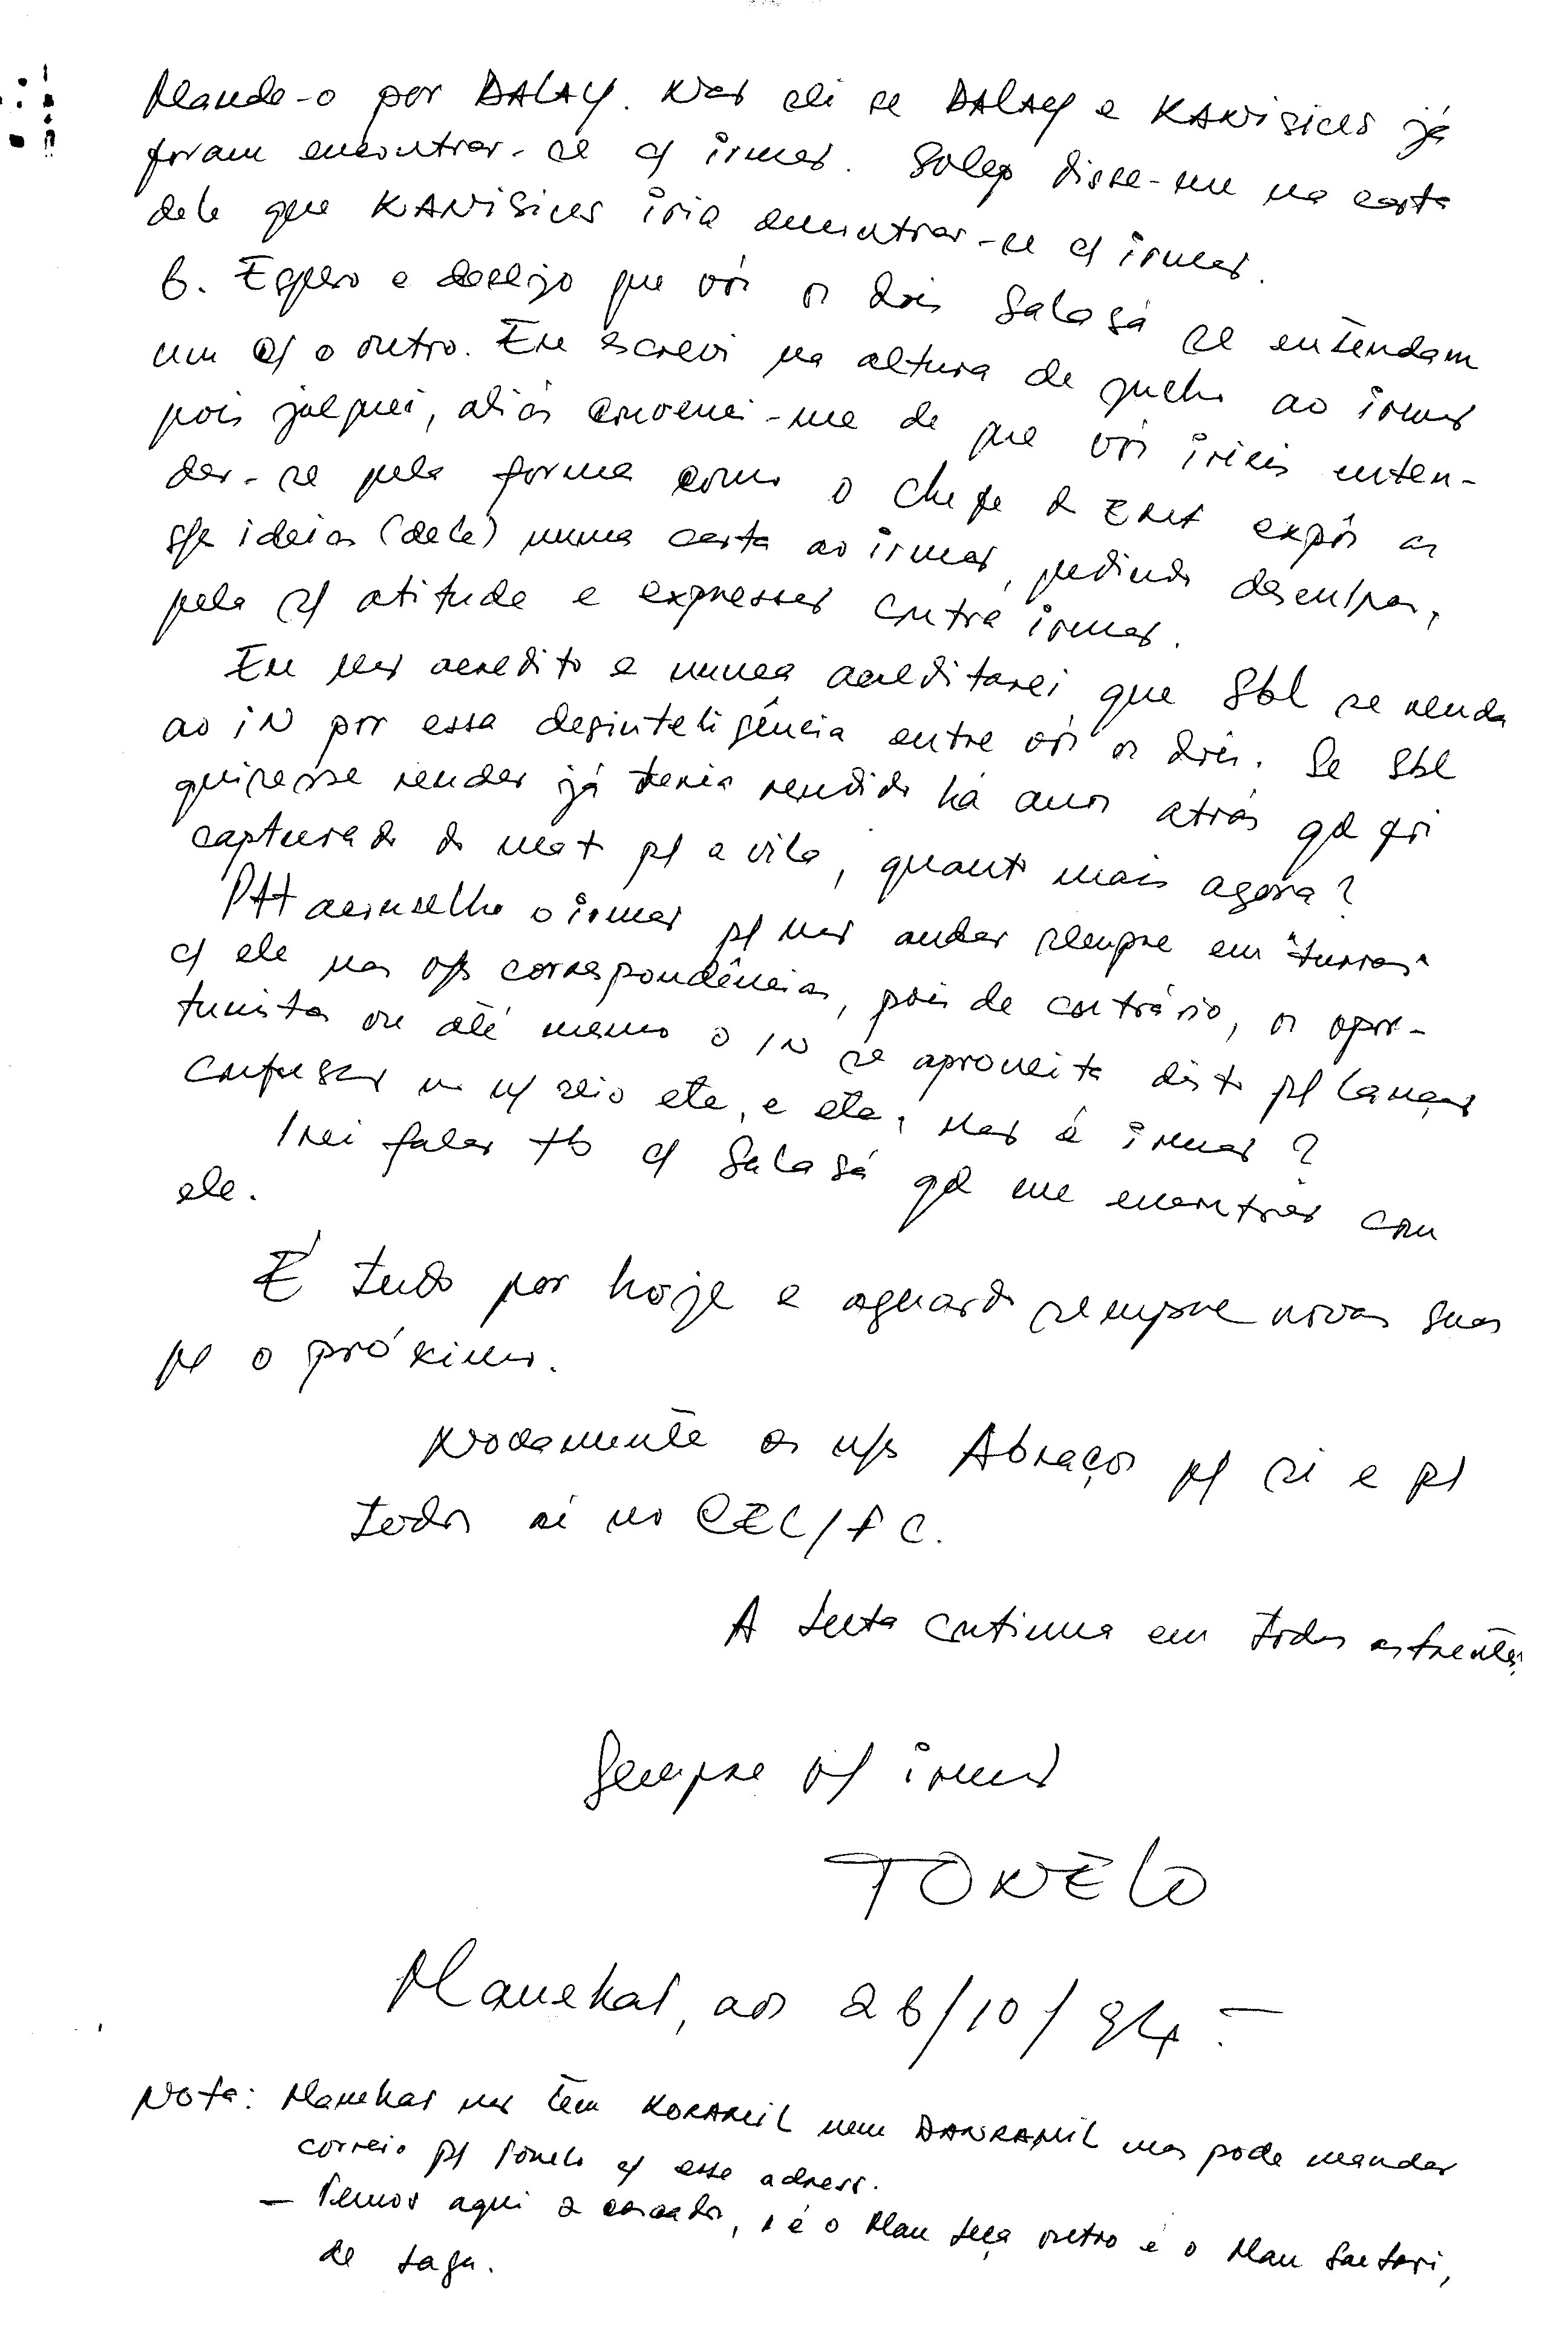 Mande-o por DALAY. Não sei se DALAY e KANISIUS já
foram encontrar-se c/ irmão. Solep disse-me na carta
dele que KANISIUS iria encontrar-se c/ irmão.
6. Espero e desejo que vós os dois Galasá se entendam
um c/ o outro. Eu escrevi na altura de julho ao irmão
pois julguei, aliás convenci-me de que vós irieis enten-
der-se pela forma como o chefe expôs as
s/s ideias (dele) numa carta ao irmão, pedindo desculpas,
pela s/ atitude e expressões contra irmão.
Eu não acredito e nunca acreditarei que Sbl se renda
ao iN por essa desinteligência entre vós os dois. Se Sbl
quizesse render já teria rendido há anos atrás qd foi
capturado do mato p/ a vila, quanto mais agora?
aconselho o irmão p/ não andar sempre em "turras"
c/ ele nas v/s correspondências, pois de contrário, os opor-
tunistas ou até mesmo o iN se aproveita disto p/ lançar
confusão no n/ seio etc, e etc, não é irmão?
Irei falar tb c/ Galasá qd me encontrar com
ele.
É tudo por hoje e aguardo sempre novas suas
p/ o próximo.
Novamente os n/s Abraços p/ si e p/
todos aí no CEL/FC.
A luta continua em todas as frentes!
Sempre v/ irmão
TONELO
Manehat, aos 26/10/94.-
Nota: Manehat não tem KORAMIL nem DANRAMIL mas pode mandar
correio p/ Tonelo c/ esse adress.
- Temos aqui 2 , 1 é o Mau outro é o Mau
de